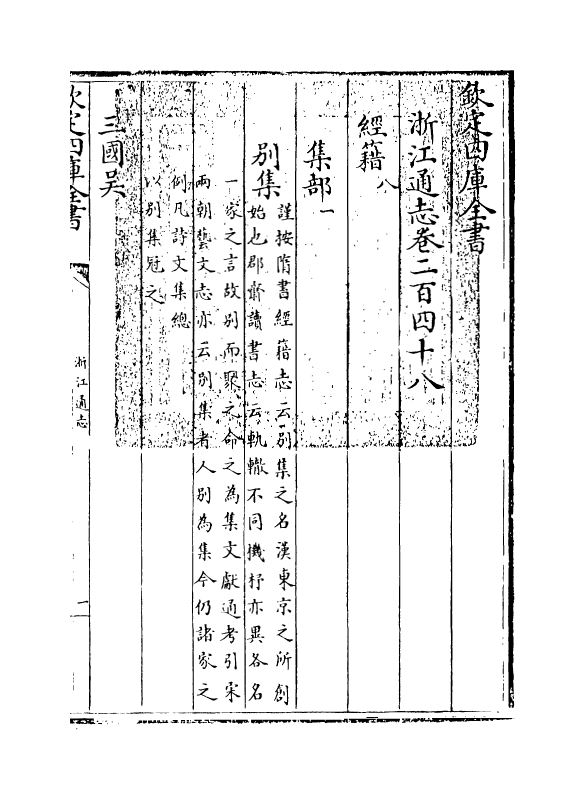 欽定四庫全書
浙江通志卷二百四十八
經籍八
集部一
別集
謹按隋書經籍志云別集之名漢東京之所創
始也郡齋讀書志云軌轍不同機杼亦異各名
一家之言故別而聚之命之為集文獻通考引宋
兩朝藝文志亦云別集者人別為集今仍諸家之
例凡詩文集總
以別集冠之
三國吳
欽定四庫全書
浙江通志
一